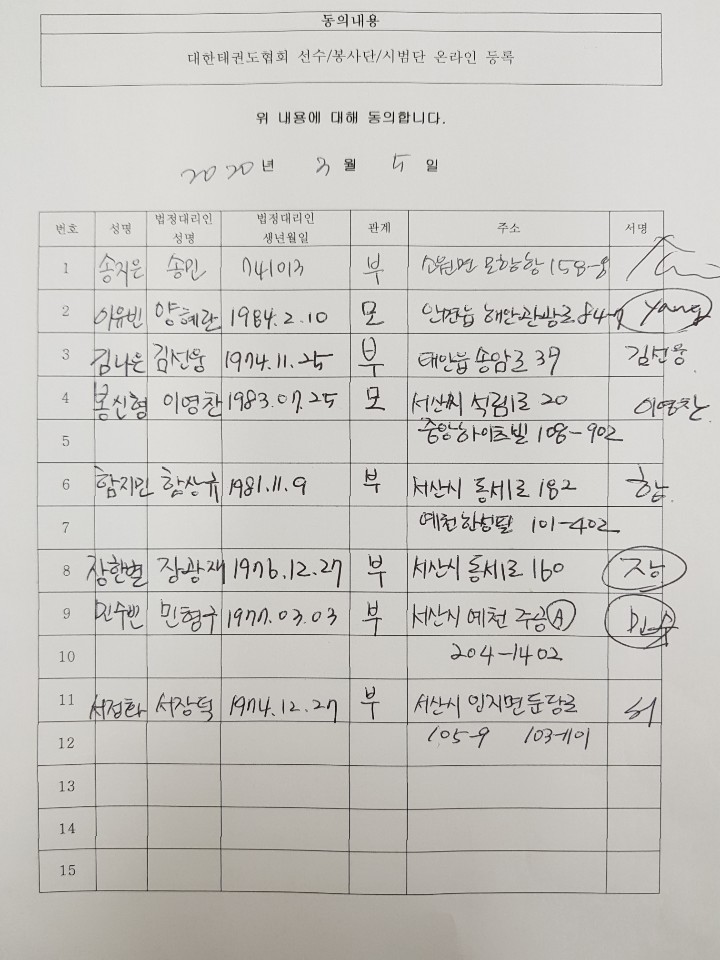 동의내용
대한태권도협회 선수/봉사단/시범단 온라인 등록
위 내용에 대해 동의합니다.
2020년 3월 5일
번호 성명 법정대리인 성명 법정대리인 생년월일 관계 주소 서명
1 송지은 송민 741013 부 소원면 모항항 158-8
2 이유빈 양혜란 1984.2.10 모 안면읍 해안관광로 84-7 Yang
3 김나은 김선웅 1974.11.25 부 태안읍 송암로 39 김선웅
4 봉신형 이영찬 1983.07.25 모 서산시 석림1로 20 이영찬
5 중앙하이츠빌 108-902
6 함지민 함상규 1981.11.9 부 서산시 동서1로 182 함
7 예천한성필 101-402
8 장한별 장광재 1976.12.27 부 서산시 동서1로 160 장
9 민수빈 민형구 1977.03.03 부 서산시 예천 주공 A
10 204-1402
11 서정화 서장덕 1974.12.27 부 서산시 인지면 둔당로 서
12 105-9
13
14
15